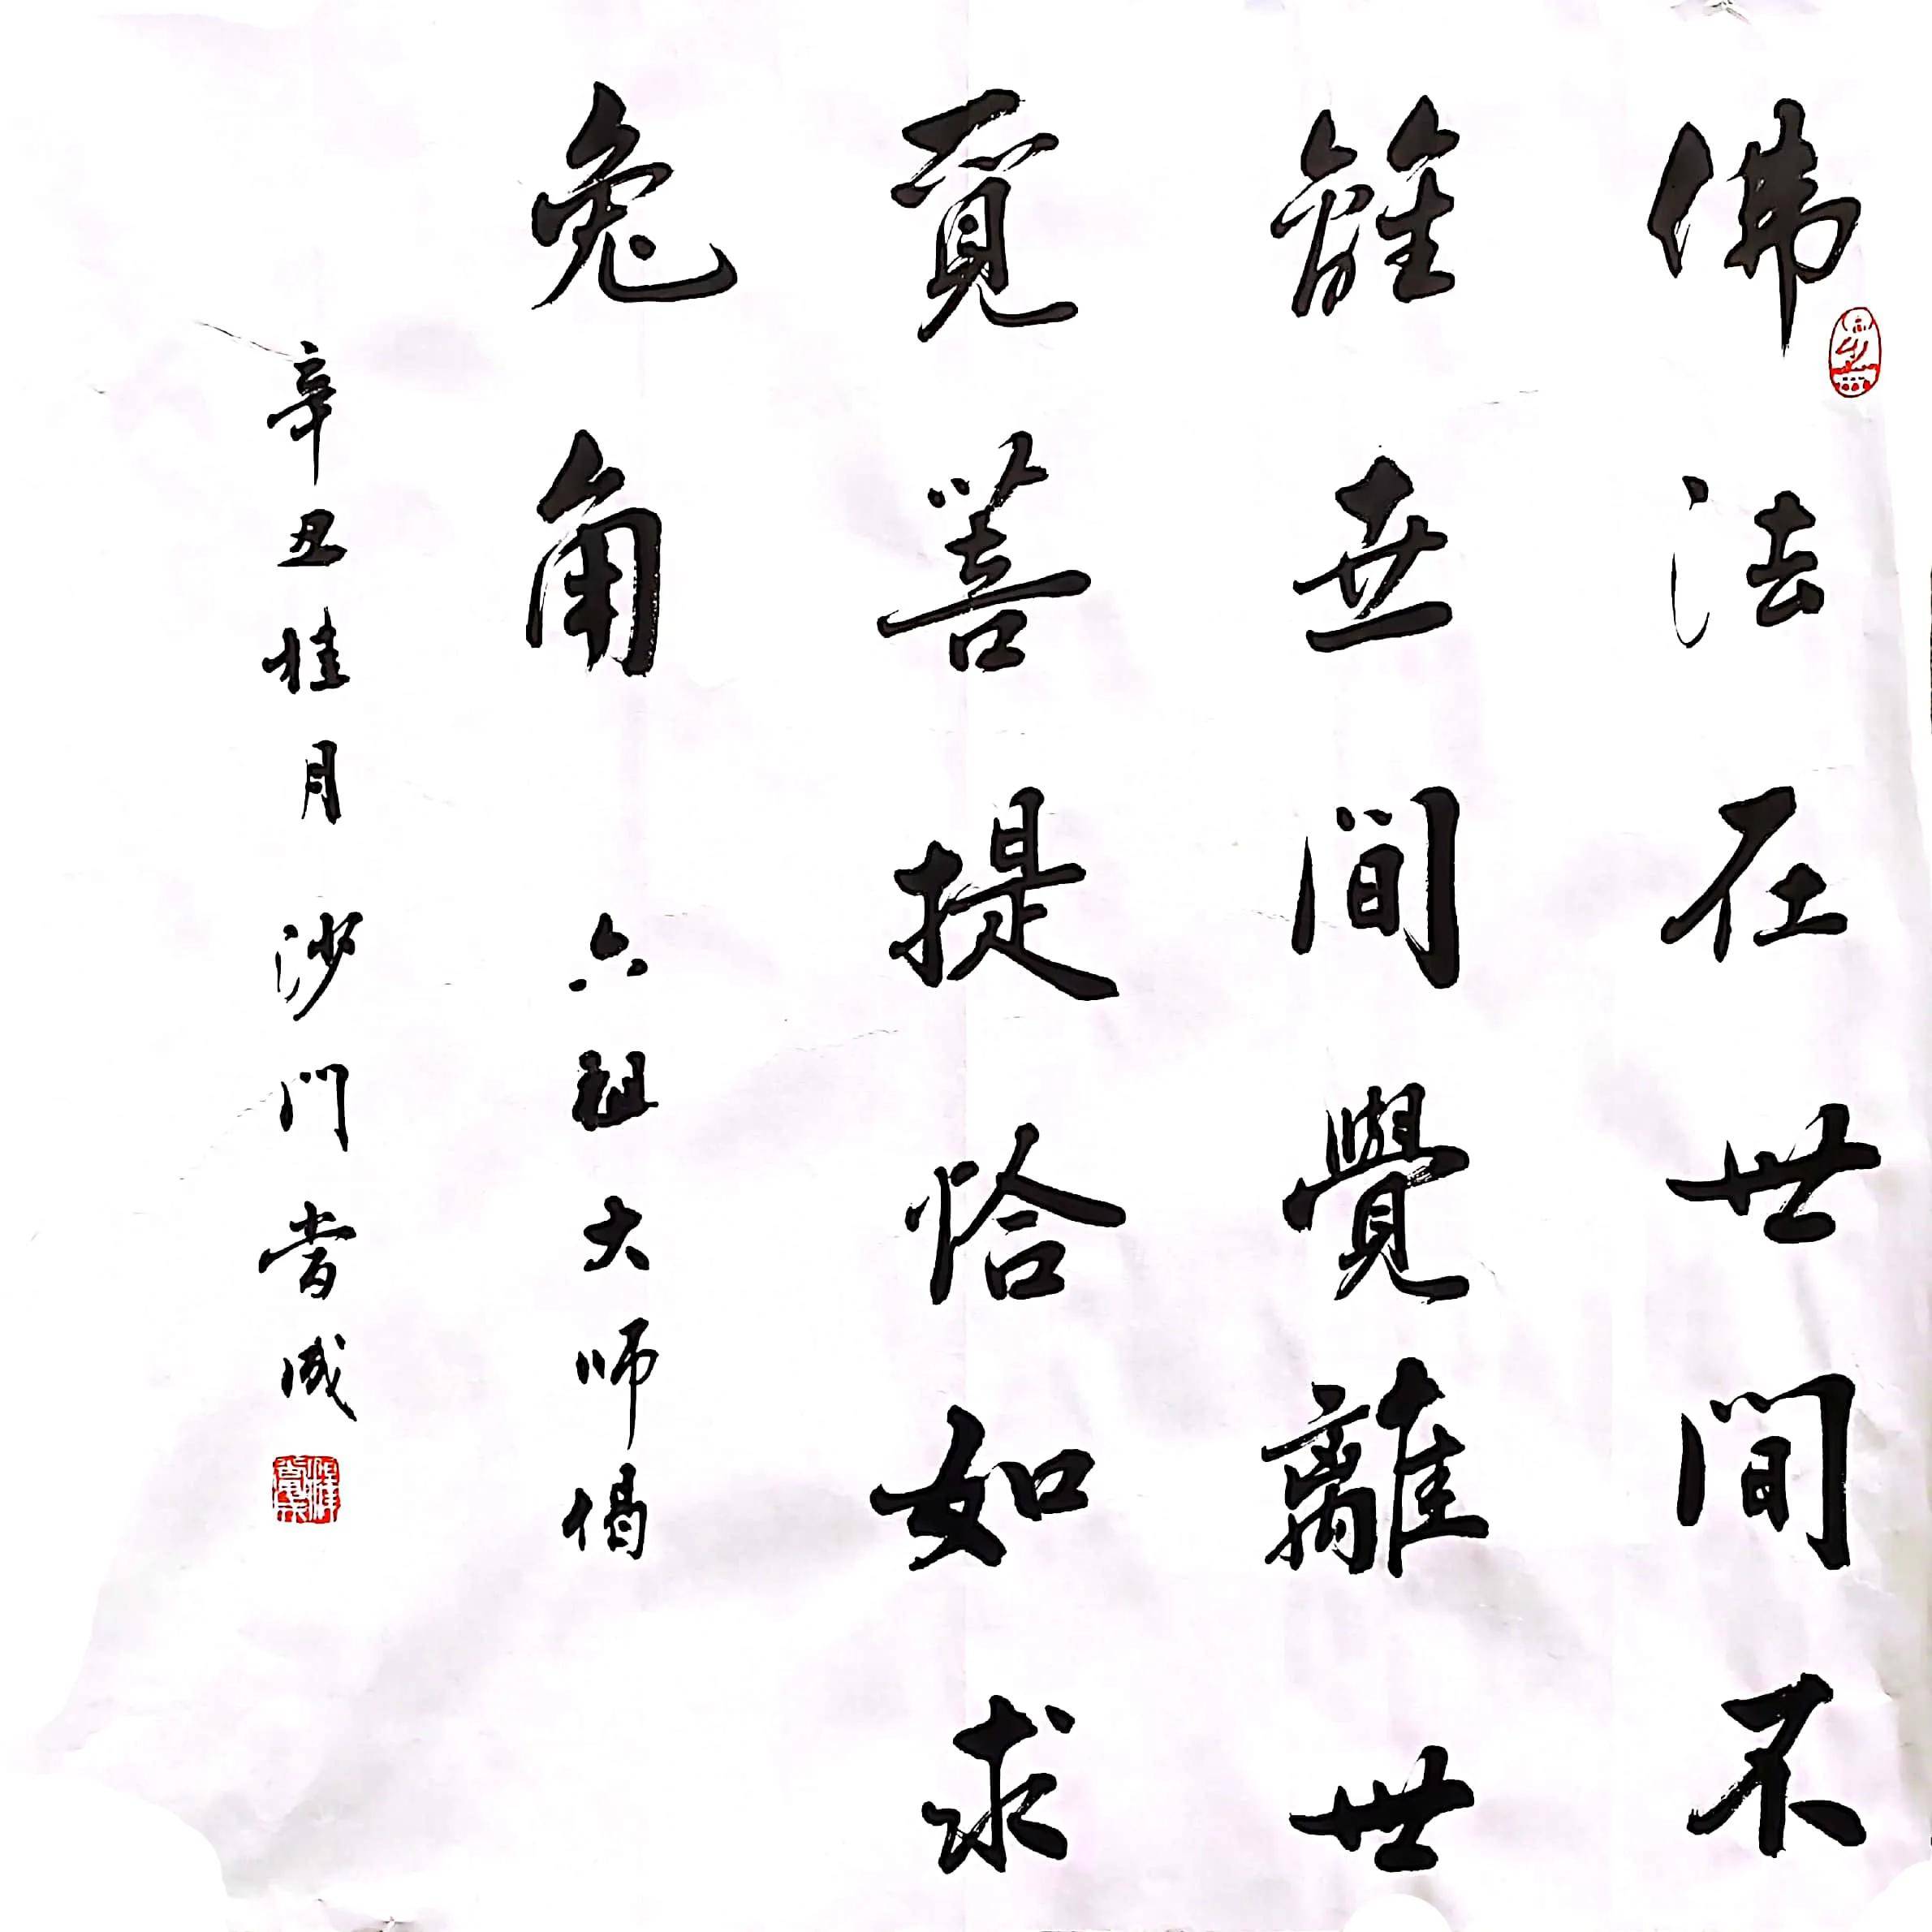 佛法在世間不
離世間覺離世
覓菩提恰如求
兔角 六祖大師偈
辛丑桂月沙門常成